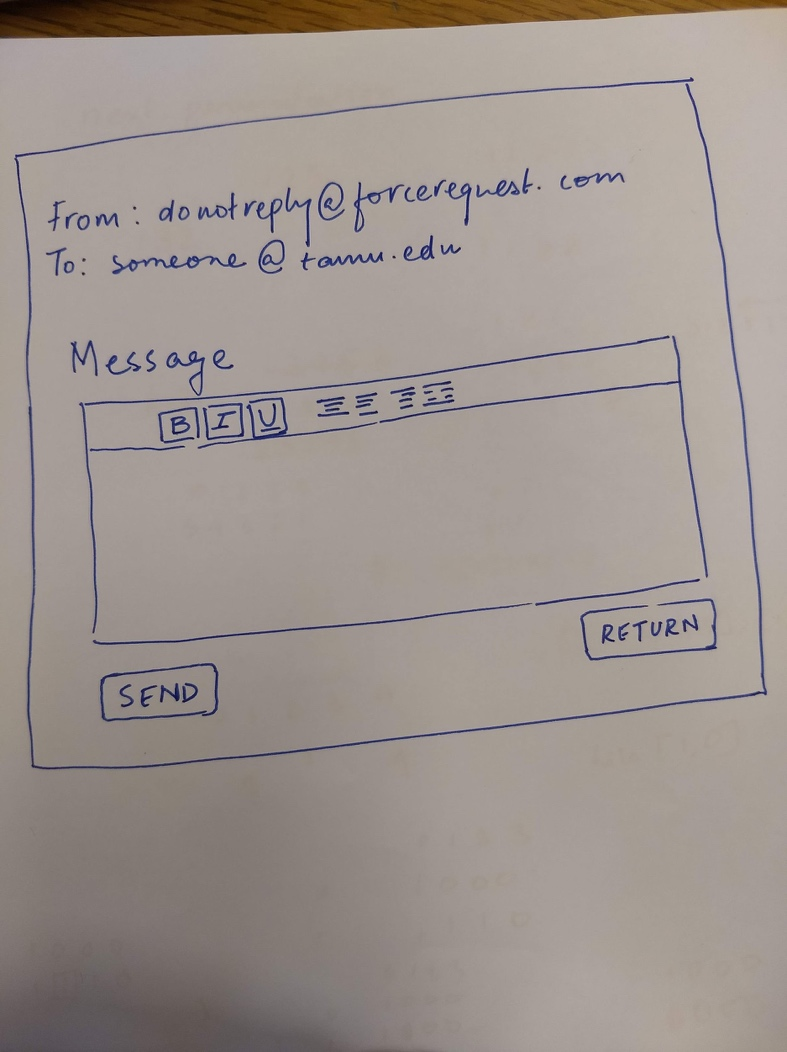 From: donotreply@forcerequest.com
To: someone@tamu.edu
Message
B I U
RETURN
SEND